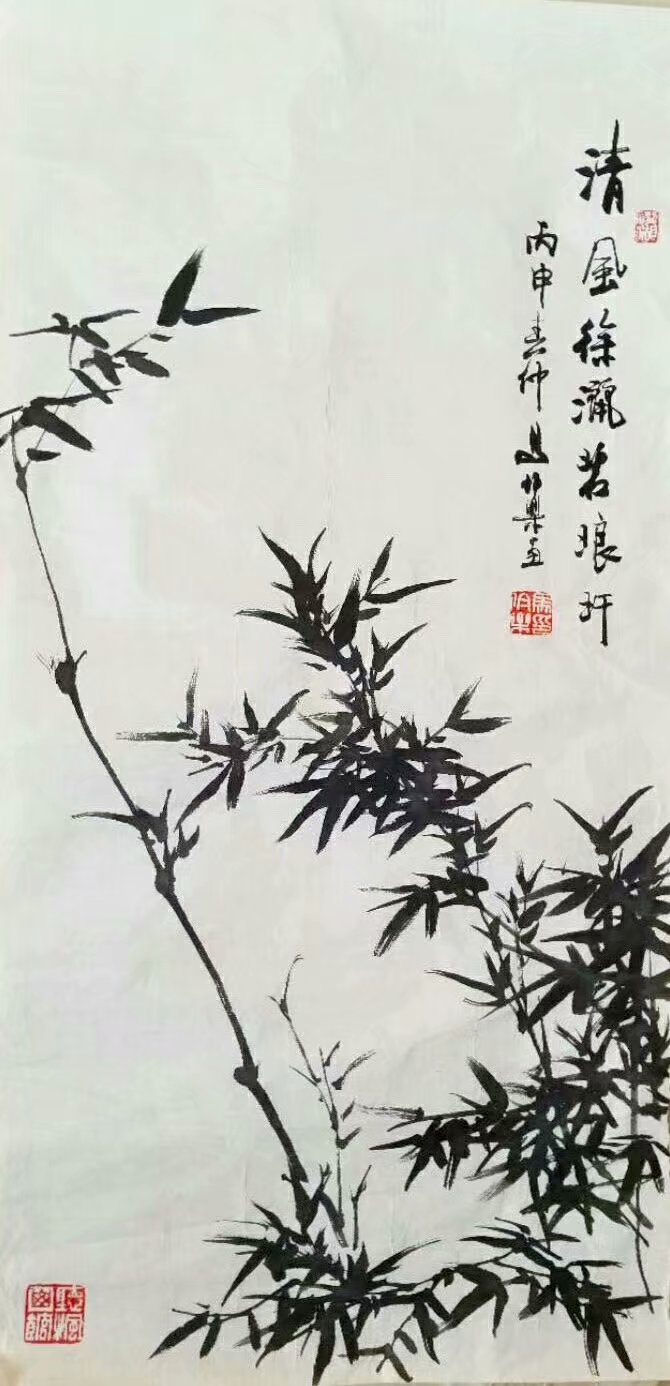 清風徐灑若琅玕
丙申春仲馬伯樂画